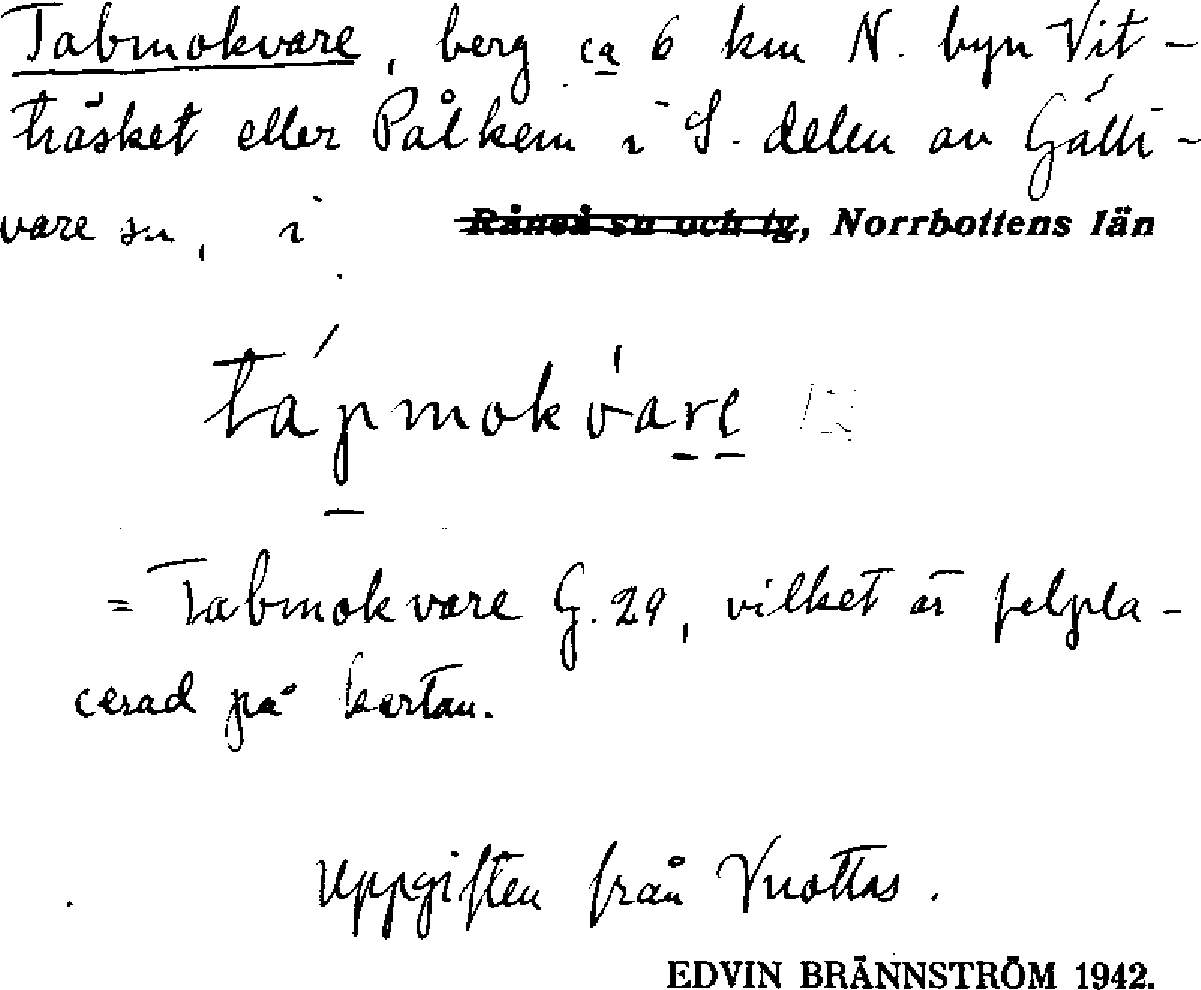 Tabmokvare, berg ca 6 km N. byn Vit-
träsket eller Pålkem i S. delen av Gälli-
vare sn, i Råneå sn och tg, Norrbottens län
tápmokvare
= Tabmokvare G. 29, vilket är felpla-
cerad på kartan.
Uppgiften från Vuottas.
EDVIN BRÄNNSTRÖM 1942.